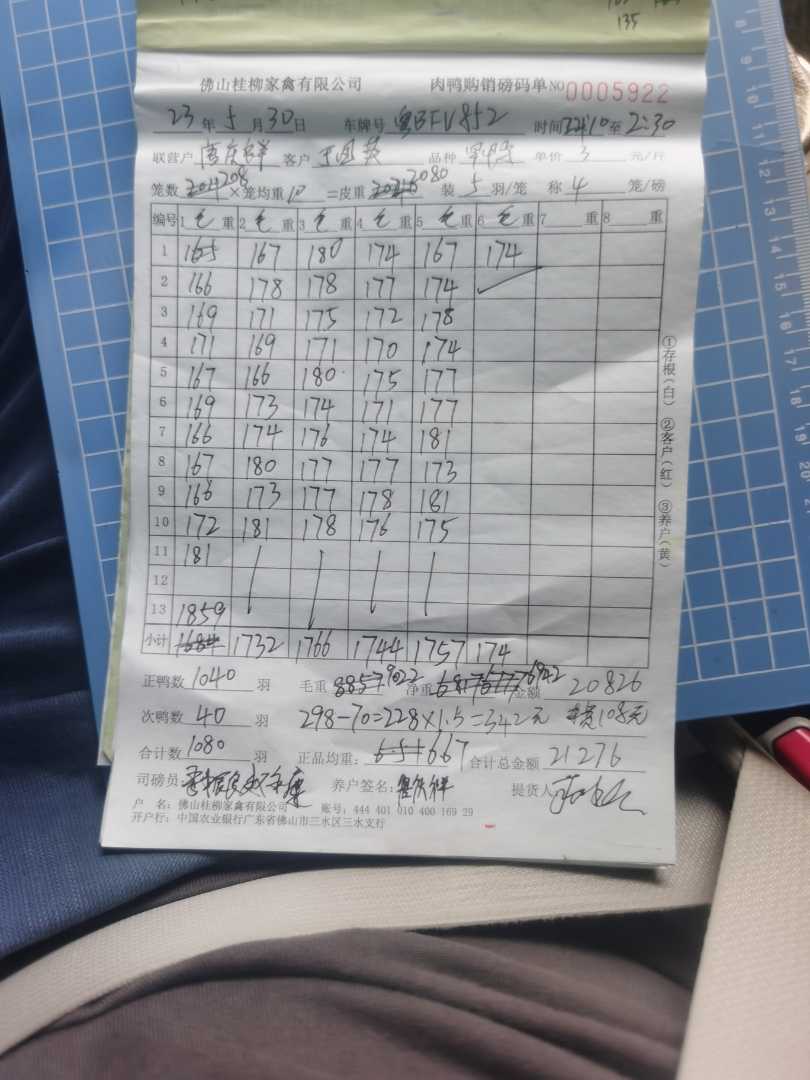 135
佛山桂柳家禽有限公司 肉鸭购销磅码单NO 0005922
23年5月30日 车牌号 粤BFV852 时间22410至2:30
联营户 客户 品种 单价 3 元/斤
笼数 204 208 ×笼均重 10 =皮重 2040 2080 装 5 羽/笼 称 4 笼/磅
编号 1 毛 重 2 毛 重 3 毛 重 4 毛 重 5 毛 重 6 毛 重 7 重 8 重
1 165 167 180 174 167 174
2 166 178 178 177 174
3 169 171 175 172 178
4 171 169 171 170 174
5 167 166 180 175 177
6 169 173 174 171 177
7 166 174 176 174 181
8 167 180 177 177 173
9 166 173 177 178 181
10 172 181 178 176 175
11 181
12
13 1859
小计 1684 1732 1766 1744 1757 174
正鸭数 1040 羽 毛重 8857 9022 净重 6817 6777 6942 金额 20826
次鸭数 40 羽 298-70=228×1.5=342元 108元
合计数 1080 羽 正品均重: 6.51 667 合计总金额 21276
司磅员: 养户签名: 提货人
户 名: 佛山桂柳家禽有限公司 账号: 444 401 010 400 169 29
开户行: 中国农业银行广东省佛山市三水区三水支行
①存根(白) ②客户(红) ③养户(黄)